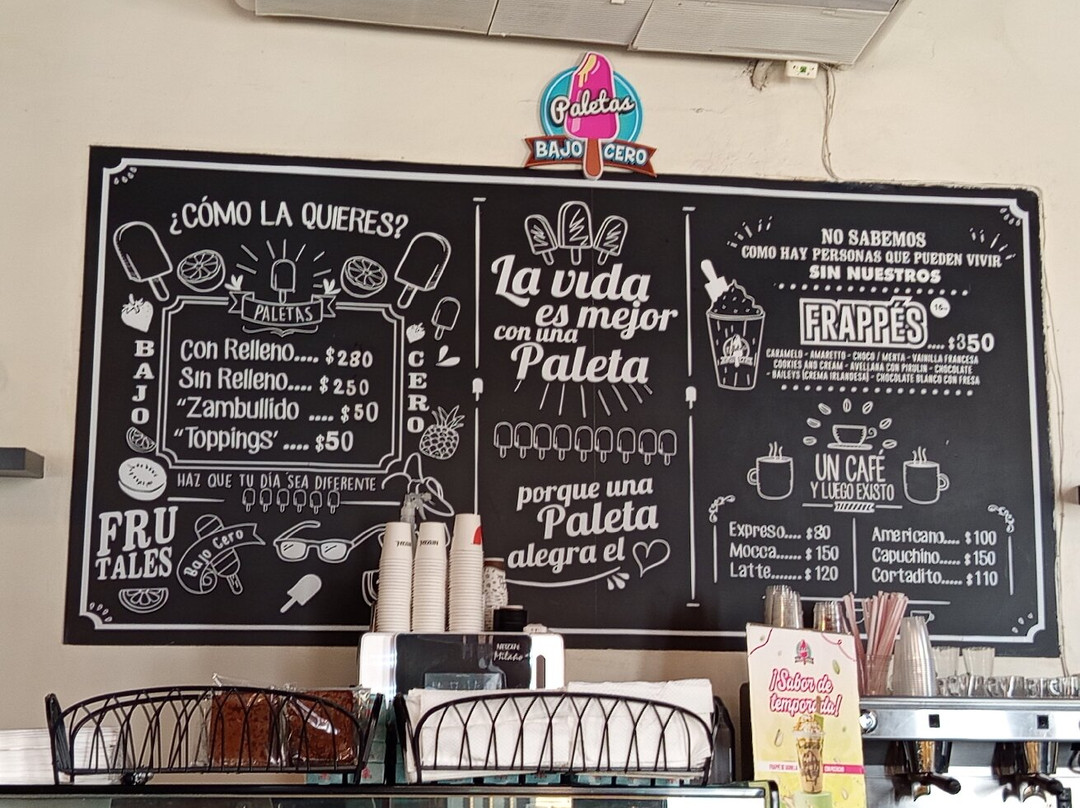 Paletas
BAJO CERO
¿CÓMO LA QUIERES?
PALETAS
BAJO
CERO
Con Relleno.... $280
Sin Relleno.... $250
"Zambullido .... $50
"Toppings' .... $50
HAZ QUE TU DÍA SEA DIFERENTE
FRU
TALES
Bajo Cero
La vida
es mejor
con una
Paleta
porque una
Paleta
alegra el
NO SABEMOS
COMO HAY PERSONAS QUE PUEDEN VIVIR
SIN NUESTROS
FRAPPÉS 16oz
.... $350
CARAMELO - AMARETTO - CHOCO / MENTA - VAINILLA FRANCESA
COOKIES AND CREAM - AVELLANA CON PIRULIN - CHOCOLATE
- BAILEYS (CREMA IRLANDESA) - CHOCOLATE BLANCO CON FRESA
UN CAFÉ
Y LUEGO EXISTO
Expreso.... $80
Mocca....... $150
Latte........ $120
Americano.... $100
Capuchino.... $150
Cortadito..... $110
Milano
¡Sabor de
temporada!